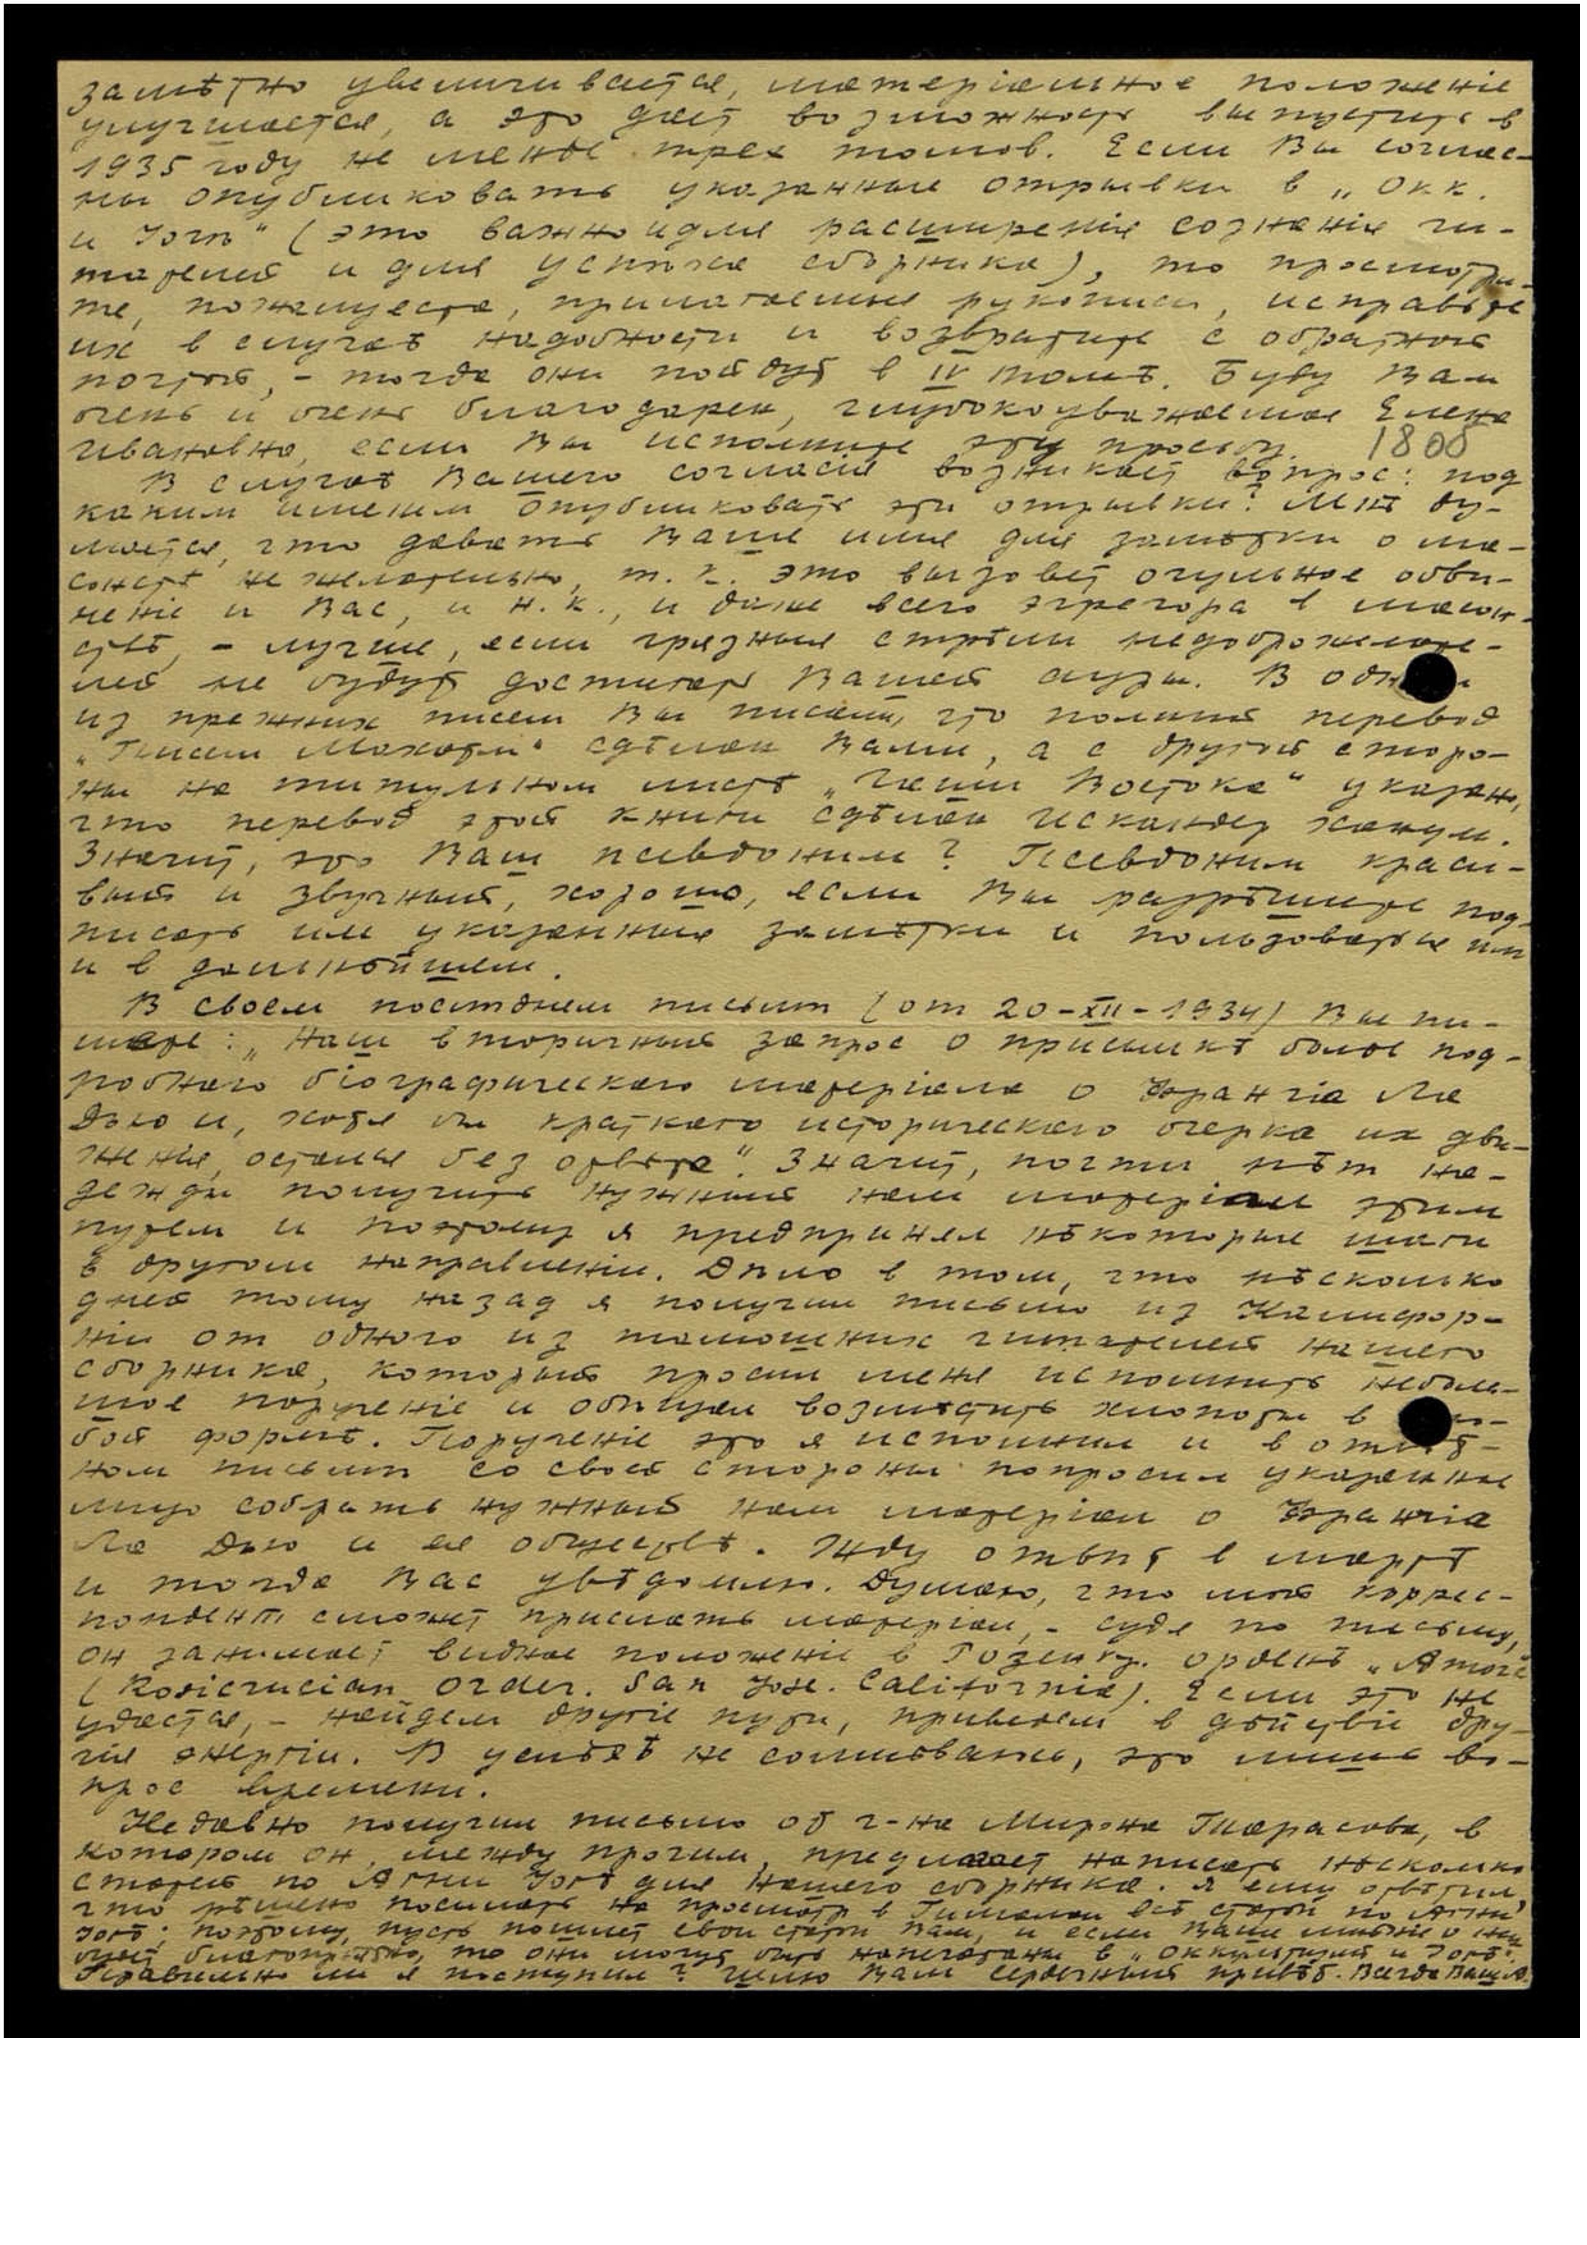 замѣтно увеличивается, матеріальное положеніе
улучшается, а это дает возможность выпустить в
1935 году не менѣе трех томов. Если Вы соглас-
ны опубликовать указанные отрывки в „Окк.
и Йогѣ" (это важно и для расширенія сознанія чи-
тателей и для успѣха сборника), то просмотри-
те, пожалуйста, прилагаемые рукописи, исправьте
их в случаѣ надобности и возвратите с обратной
почтой, - тогда они пойдут в IV томѣ. Буду Вам
очень и очень благодарен, глубокоуважаемая Елена
Ивановна, если Вы исполните эту просьбу. 180б
В случаѣ Вашего согласія возникает вопрос: под
каким именем опубликовать эти отрывки? Мнѣ ду-
мается, что давать Ваше имя для замѣтки о ма-
сонствѣ не желательно, т. к. это вызовет огульное обви-
неніе и Вас, и Н. К., и даже всего эгрегора в масон-
ствѣ, - лучше, если грязные стрѣлы недоброжелате-
лей не будут достигать Вашей ауры. В одном
из прежних писем Вы писали, что полный перевод
„Писем Махатм" сдѣлан Вами, а с другой сторо-
ны на титульном листѣ „Чаши Востока" указано,
что перевод этой книги сдѣлан Искандер Ханум.
Значит, это Ваш псевдоним? Псевдоним краси-
вый и звучный, хорошо, если Вы разрѣшите под-
писать им указанные замѣтки и пользоваться им
и в дальнѣйшем.
В своем послѣднем письмѣ (от 20-XII-1934) Вы пи-
шете: „Наш вторичный запрос о присылкѣ болѣе под-
робнаго біографическаго матеріала о Франчіа Ла
Дью и, хотя бы краткаго историческаго очерка их дви-
женія, остался без отвѣта". Значит, почти нѣт на-
дежды получить нужный нам матеріал этим
путем и поэтому я предпринял нѣкоторые шаги
в другом направленіи. Дѣло в том, что нѣсколько
дней тому назад я получил письмо из Калифор-
ніи от одного из тамошних читателей нашего
сборника, который просил меня исполнить неболь-
шое порученіе и обѣщал возмѣстить хлопоты в лю-
бой формѣ. Порученіе это я исполнил и в отвѣт-
ном письмѣ со своей стороны попросил указанное
лицо собрать нужный нам матеріал о Франчіа
Ла Дью и ее обществѣ. Жду отвѣт в мартѣ
и тогда Вас увѣдомлю. Думаю, что мой коррес-
пондент сможет прислать матеріал, - судя по письму,
он занимает видное положеніе в Розенкр. орденѣ „Аmorc"
(Rosicrucian Order. San Jose. California). Если это не
удастся, - найдем другіе пути, приведем в дѣйствіе дру-
гія энергіи. В успѣхѣ не сомнѣваюсь, это лишь во-
прос времени.
Недавно получил письмо от г-на Мирона Тарасова, в
котором он, между прочим, предлагает написать нѣсколько
статей по Агни Йогѣ для нашего сборника. Я ему отвѣтил,
что рѣшено посылать на просмотр в Гималаи всѣ статьи по Агни
Йогѣ; поэтому, пусть пошлет свои статьи Вам, и если Ваше мнѣніе о них
будет благопріятно, то они могут быть напечатаны в „Оккультизм и Йога".
Правильно ли я поступил? Шлю Вам сердечный привѣт. Всегда Ваш А.